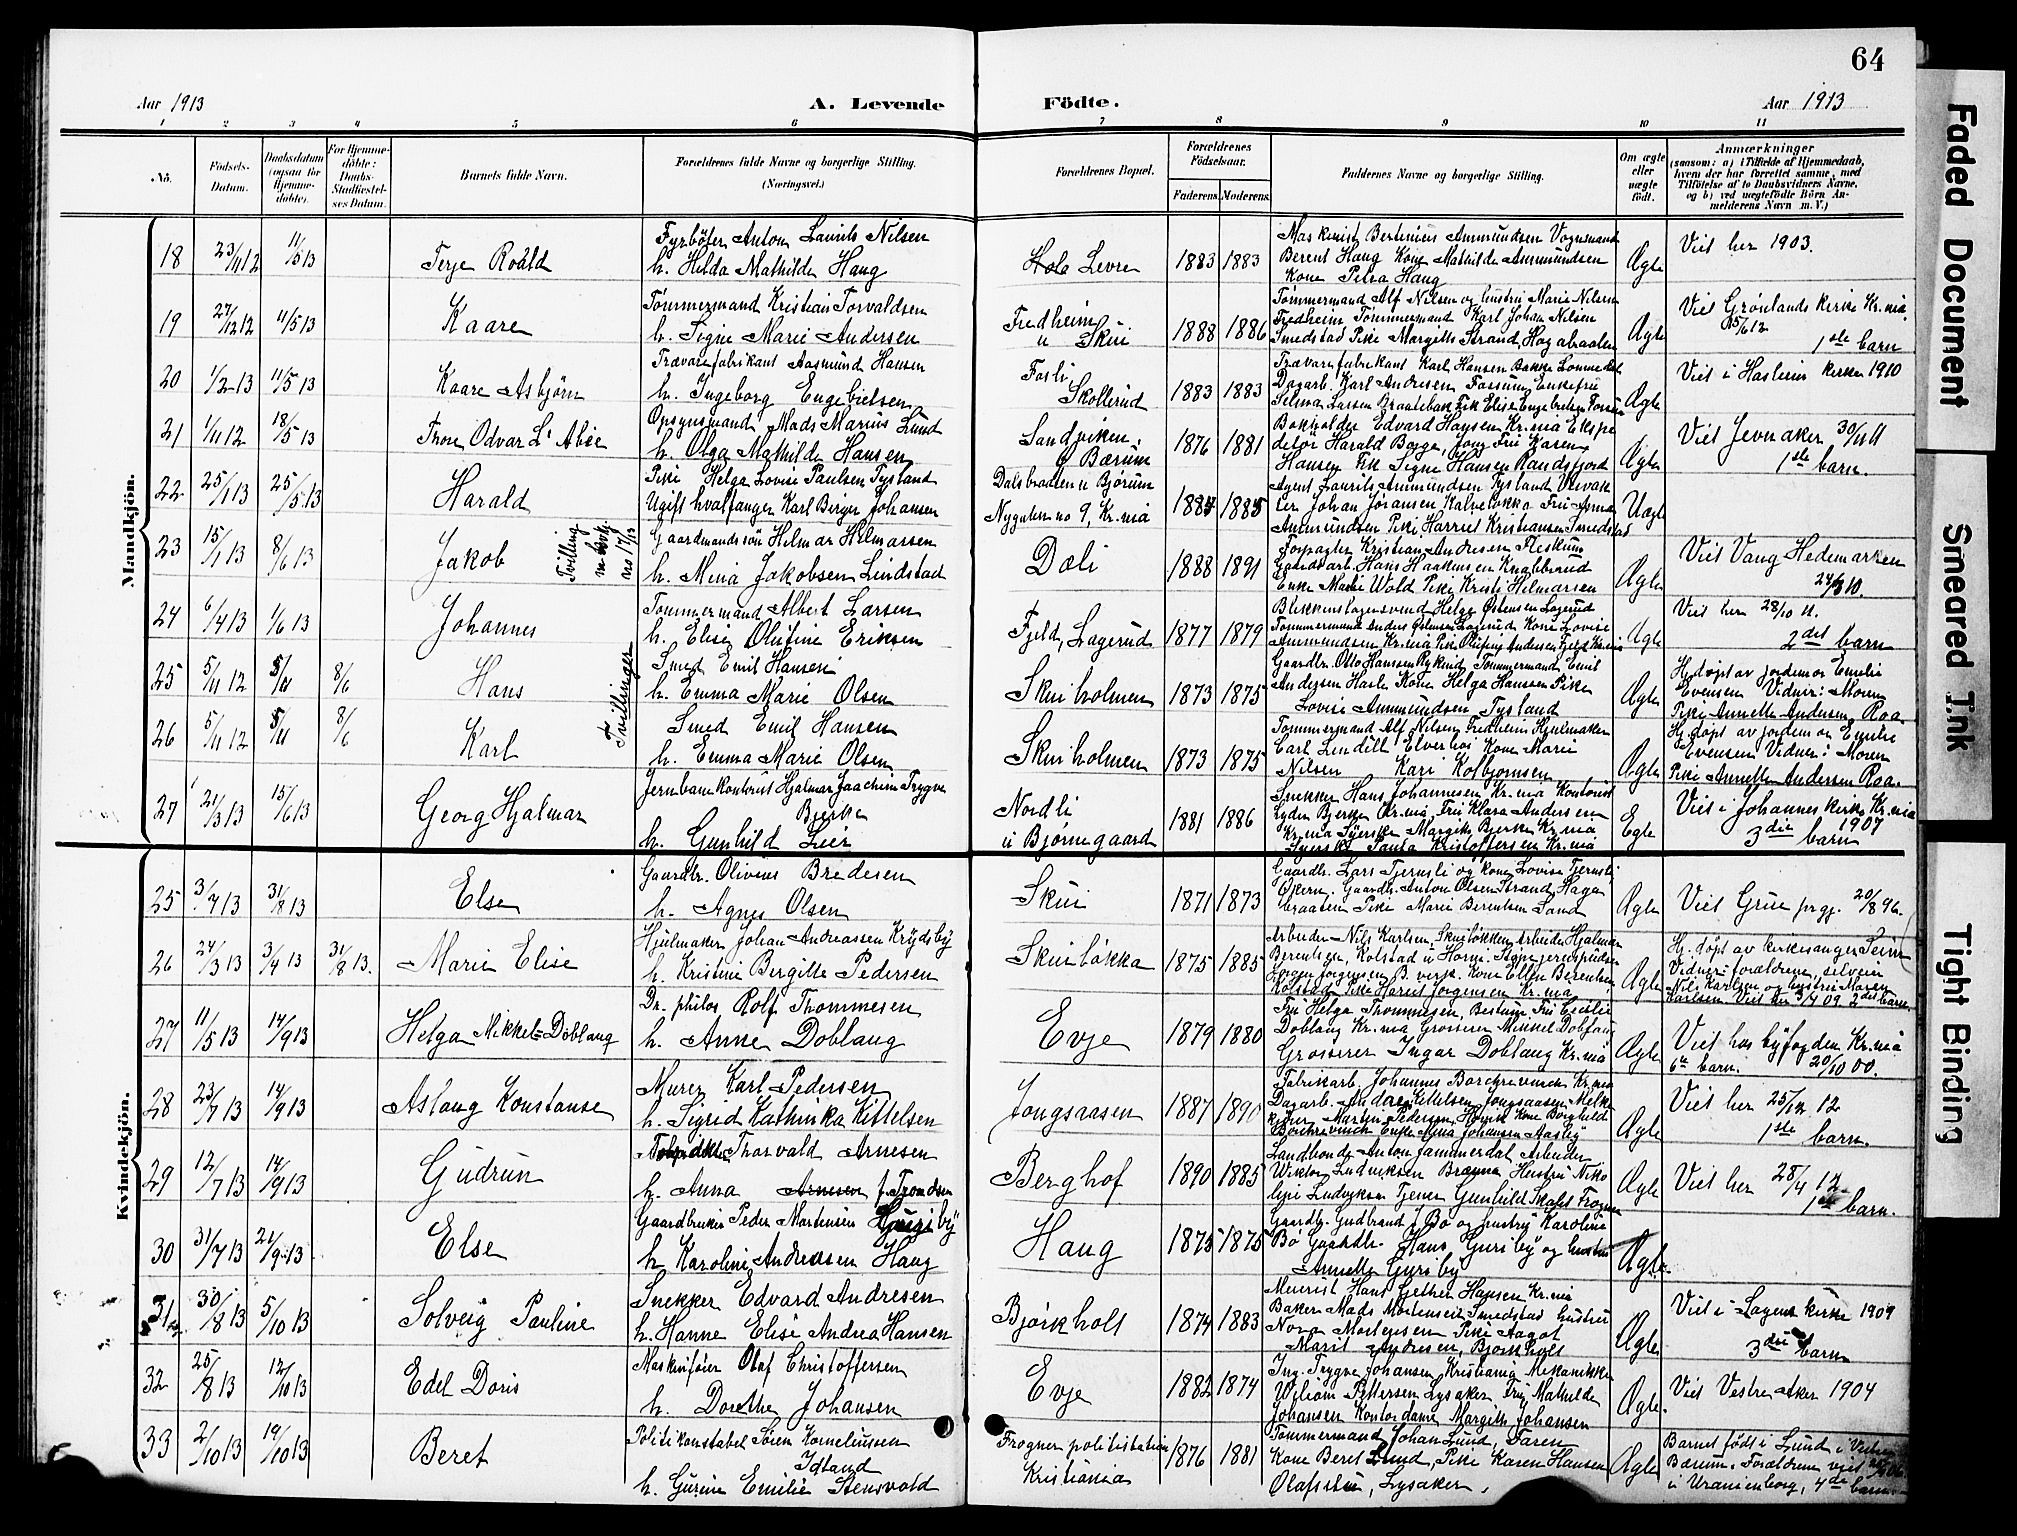 64
Aar 1913
A. Levende
Födte.
Aar 1913
1 2 3 4 5 6 7 8 9 10 11
No.
Födsels-
Datum.
Daabsdatum
(ogsaa for
Hjemme-
døbte).
For Hjemme-
døbte:
Daabs-
Stadfæstel-
ses Datum.
Barnets fulde Navn.
Forældrenes fulde Navne og borgerlige Stilling.
(Næringsvei.)
Forældrenes Bopæl.
Forældrenes
Födselsaar.
Faderens. Moderens.
Faddernes Navne og borgerlige Stilling.
Om ægte
eller
uægte
født.
Anmærkninger
(saasom: a) i Tilfælde af Hjemmedaab,
hvem der har forrettet samme, med
Tilføielse af to Daabsvidners Navne,
og b) ved uægtefødte Börn An-
melderens Navn m. V.)
Mandkjön.
18 23/11 12 11/5 13
Terje Roald
Fyrbøter Anton Laurits Nilsen
h. Helda Mathilde Haug
Levre
1883 1883
Maskinist Bertinius Ammundsen Vognsmand
Berent Haug Kone Mathilde Ammundsen
Kone Petra Haug
Ægte
Viet her 1903.
19 27/12 12 11/5 13
Kaare
Tømmermand Kristian Torvaldsen
h. Signe Marie Andersen
Fredheim
u Skui
1888 1886
Tømmermand Alf Nilsen og hustru Marie Nilsen
Fredheim Tømmermand Karl Johan Nilsen
Smedstad Pike Margith Strand, Hagabraaten
Ægte
Viet Grønlands kirke Kr.nia
15/6 12
1ste barn
20 1/2 13 11/5 13
Kaare Asbjørn
Trævarefabrikant Aasmund Hansen
h. Ingeborg Engebretsen
Fosli
Skollerud
1883 1883
Trævarefabrikant Karl Hansen Bakke Lommedal
Dagarb. Karl Andresen Fossum Enkefru
Selma Larsen Braatebak Frk Elise Engebretsen Fossum
Ægte
Viet i Haslum kirke 1910
21 1/11 12 18/5 13
Thore Odvar L' Abse
Opsynsmand Mads Marius Lund
h. Olga Mathilde Hansen
Sandviken
Bærum
1876 1881
Bokholder Edvard Hansen Kr.nia Ekspe
ditør Harald Borge, Fru Karen
Hansen Frk Signe Hansen Randsfjord
Ægte
Viet Jevnaker 30/11 11
1ste barn.
22 25/1 13 25/5 13
Harald
Pike Helga Lovise Paulsen Tysland
Ugift hvalfanger Karl Birger Johansen
Dalsbraaten u Bjørum
Nygaten no 9, Kr.nia
1887 1885
Agent Laurits Ammundsen Tysland
Johan Jøransen Kalveløkka Fru Anna
Ammundsen Pike Harriet Kristiansen Smedstad
Uægte
23 15/1 13 8/6 13
Jakob
Tvilling
no 17/13
Gaardmandssøn Hilmar Hilmarsen
h. Mina Jakobsen Lindstad
Dæli
1888 1891
Forpagter Kristian Andresen Fleskum
Gaardarb. Hans Haakensen Knabberud
Enke Marie Wold Pike Kristi Hilmarsen
Ægte
Viet Vang Hedemarken
24/3 10.
24 6/4 13 1/6 13
Johannes
Tømmermand Albert Larsen
h. Elise Olufine Eriksen
Fjeld, Lagerud
1877 1879
Blikkenslagersvend Helge Østensen Lagerud
Tømmermand Anders Østensen Lagerud Kone Lovise
Ammundsen Kr.nia Pike Olufine Andersen Fjeld
Ægte
Viet her 28/10 11.
2det barn
25 5/11 12 5/11 8/6
Hans
Tvillinger
Smed Emil Hansen
h. Emma Marie Olsen
Skuiholmen
1873 1875
Gaardbr. Otto Hansen Rykind Tømmermand Emil
Andersen Hare Kone Helga Hansen Pike
Lovise Ammundsen Tysland
Ægte
Hj. døpt av jordemor Emilie
Evensen Vidner: Moren
Pike Annette Andersen, Roa
26 5/11 12 5/11 8/6
Karl
Smed Emil Hansen
h. Emma Marie Olsen
Skuiholmen
1873 1875
Tømmermand Alf Nilsen Fredheim Hjulmaker
Carl Lindelt Elverhøi Kone Marie
Nilsen Kari Kolbjørnsen
Ægte
Hj. døpt av jordemor Emilie
Evensen Vidner: Moren
Pike Annette Andersen Roa
27 21/3 13 15/6 13
Georg Hjalmar
Jernbanekontorist Hjalmar Joachim Trygve
Bjerke
h. Gunhild Lier
Nordli
u Bjørnegaard
1881 1886
Snekker Hans Johannesen Kr.nia Kontorist
Lyder Bjerke Kr.nia, Fru Klara Andersen
Kr.nia Syerske Margit Bjerke Kr.nia
Syerske Paula Kristoffersen Kr.nia
Egte
Viet i Johannes kirke Kr.nia
1907
3die barn
Kvindekjön.
25 3/7 13 31/8 13
Else
Gaardbr. Olivius Bredesen
h. Agnes Olsen
Skui
1871 1873
Gaardbr. Lars Tjernsli og kone Lovise Tjernsli
Økern. Gaardbr. Anton Olsen Strand Haga
braaten Pike Marie Berentsen Sand
Ægte
Viet Grue prgj. 20/8 96.
26 24/3 13 3/4 13 31/8 13.
Marie Elise
Hjulmaker Johan Andreassen Krydsby
h. Kristine Bergitte Pedersen
Skuiløkka
1875 1885
Arbeider Nils Karlsen, Skuiløkken Arbeider Hjalmar
Berentsen, Kolstad u Horni. Stapejernspudser
Jørgen Jørgensen B. verk. Kone Ellen Berentsen
Kolstad Pike Harriet Jørgensen Kr.nia
Ægte
Hj. døpt av kirkesanger Seim
Vidner: forældrene, selveier
Nils Karlsen og hustru Maren
Karlsen Viet her 3/4 09 2det barn
27 11/5 13 14/9 13
Helga Mikkel=Doblaug
Dr. philos Rolf Thommesen
h. Anne Doblaug
Evje
1879 1880
Fru Helga Thommesen, Bestyrer Fru Cecilie
Doblaug Kr.nia Grosserer Mikkel Doblaug
Grosserer Ingar Doblaug Kr.nia
Ægte
Viet hos byfogden Kr.nia
6te barn. 20/10 00.
28 23/7 13 14/9 13
Aslaug Konstanse
Murer Karl Pedersen
h. Sigrid Kathinka Kittelsen
Jongsaasen
1887 1890
Fabrikarb. Johannes Borchrevinch Kr.nia
Dagarb. Andor Kittelsen Jongsaasen Melke
kjører Martin Pedersen Kone Borghild
Borchrevinch Enke Anna Johansen Aasly
Ægte
Viet her 25/12 12
1ste barn.
29 12/7 13 14/9 13
Gudrun
Thorvald Arnesen
h. Anna Arnesen f. Trondsen
Berghof
1890 1885
Landbonde Anton Jammerdal Arbeider
Wiktor Ludviksen Brænna Hustru Niko
line Ludviksen Tjener Gunhild Skolst Frogner
Ægte
Viet her 28/4 12
1ste barn.
30 31/7 13 21/9 13
Else
Gaardbruker Peder Mortensen Gursby
h Karoline Andreasen Haug
Haug
1875 1875
Gaardbr. Gudbrand J Bø og hustru Karoline
Bø Gaardbr. Hans Gursby og hustru
Annette Gursby
Ægte
31 30/8 13 5/10 13
Solveig Pauline
Snekker Edvard Andresen
h. Hanne Elise Andrea Hansen
Bjørkholt
1874 1883
Murerist Hans Gether Hansen Kr.nia
Baker Mads Mortensen Smedstad hustru
Nora Mortensen Pike Aagot
Marit Andresen, Bjørkholt
Ægte
Viet i Lagens kirke 1909
3die barn
32 25/8 13 12/10 13
Edel Doris
Maskinfører Olaf Christoffersen
h. Dorthe Johansen
Evje
1882 1874
Ing. Trygve Johansen Kristiania Mekanikker
Wiliam Pettersen Lysaker Fru Mathilde
Johansen Kontordame Margith Johansen
Ægte.
Viet Vestre Aker 1904
33 2/10 13 19/10 13
Beret
Politikonstabel Søren Korneliussen
Idland
h. Gurine Emilie Stensvold
Frogner politistation
Kristiania
1876 1881
Tømmermand Johan Lund, Faren
Kone Beret Lund, Pike Karen Hansen
Olafsstun, Lysaker.
Ægte
Barnet født i Lund i Vestre
Bærum. Forældrene viet
i Uranienborg, 4de barn.
Faded Document
Smeared Ink
Tight Binding